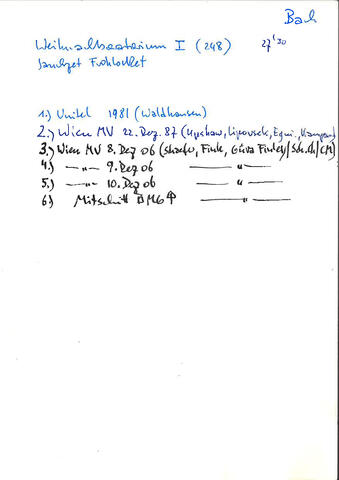 Bach
Weihnachtsoratorium I (248) 27'30
Jauchzet Frohlocket
1.) Unitel 1981 (Waldhausen)
2.) Wien MV 22. Dez. 87 (Upshaw, Lipovsek, Equi.,
3.) Wien MV 8. Dez 06 (Schäfer, Fink, Güra Finley/Sch.Ch/CM)
4.) —〃— 9. Dez 06 —〃—
5.) —〃— 10. Dez 06 —〃—
6.) Mitschnitt —〃—